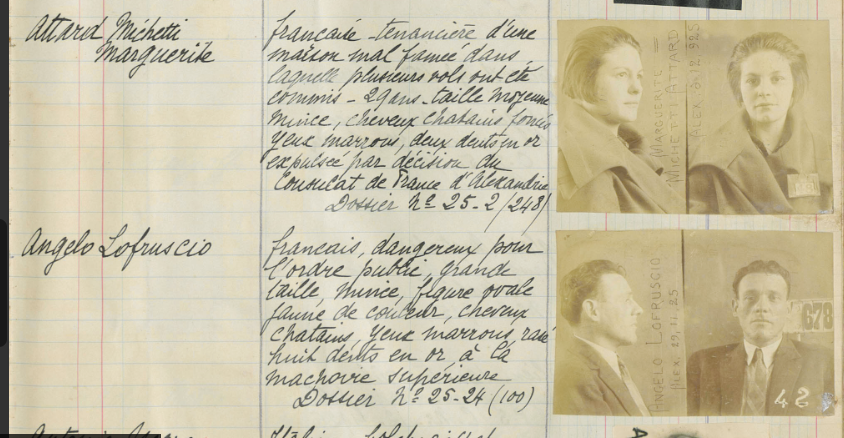 Attard Michetti
Marguerite
française - tenancière d'une
maison mal famée dans
laquelle plusieurs vols ont été
commis - 29 ans - taille moyenne
mince, cheveux chatains foncés
yeux marrons, deux dents en or
expulsée par décision du
Consulat de France d'Alexandrie
Dossier Nº 25-2/(248)
MARGUERITE =
MICHETTI ATTARD
ALEX. 2.12.925
Angelo Lofruscio
français, dangereux pour
l'ordre public, grande
taille, mince, figure ovale
jaune de couleur, cheveux
chatains, yeux marrons, rasé
huit dents en or à la
machoire supérieure
Dossier Nº 25-24 (100)
ANGELO LOFRUSCIO
ALEX, 29.11.25
678
42